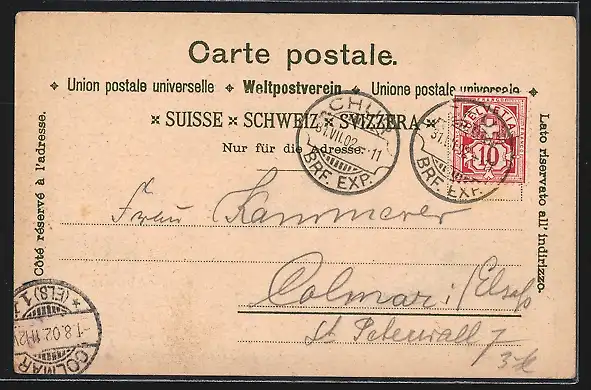 Carte postale.
✥ Union postale universelle ✥ Weltpostverein ✥ Unione postale universale ✥
× SUISSE × SCHWEIZ × SVIZZERA ×
Nur für die Adresse.
Côté réservé à l'adresse.
Lato riservato all' indirizzo.
CHUR
31.VII.02.-11
BRF. EXP.
31.VII.02
BRF. EXP.
FRANCO
HELVETIA
10
Frau Kammerer
Colmar i/Elsaß
St Peterwall 7
COLMAR
1.8.02.11-12V
* (ELS) 1